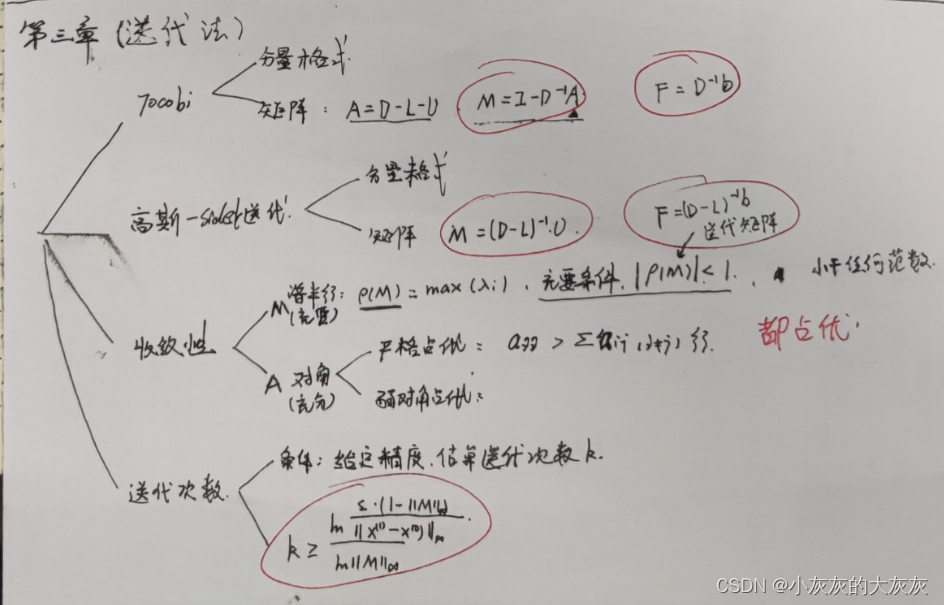 第三章(迭代法)
Jocobi
分量格式
矩阵: A=D-L-U M=I-D⁻¹A F=D⁻¹b
高斯-sidel迭代
分量格式
矩阵 M=(D-L)⁻¹·U. F=(D-L)⁻¹b
迭代矩阵
收敛性
M 谱半径: ρ(M)=max(λi), 充要条件, |ρ(M)|<1. 小于任何范数.
(充要)
A 对角
(充分)
严格占优: > Σaij 行. 都占优.
弱对角占优:
迭代次数.
条件: 给定精度, 估算迭代次数k.
k ≥ ln (ε·(1-||M||∞) / ||x⁽¹⁾-x⁽⁰⁾||∞) / ln||M||∞
CSDN @小灰灰的大灰灰